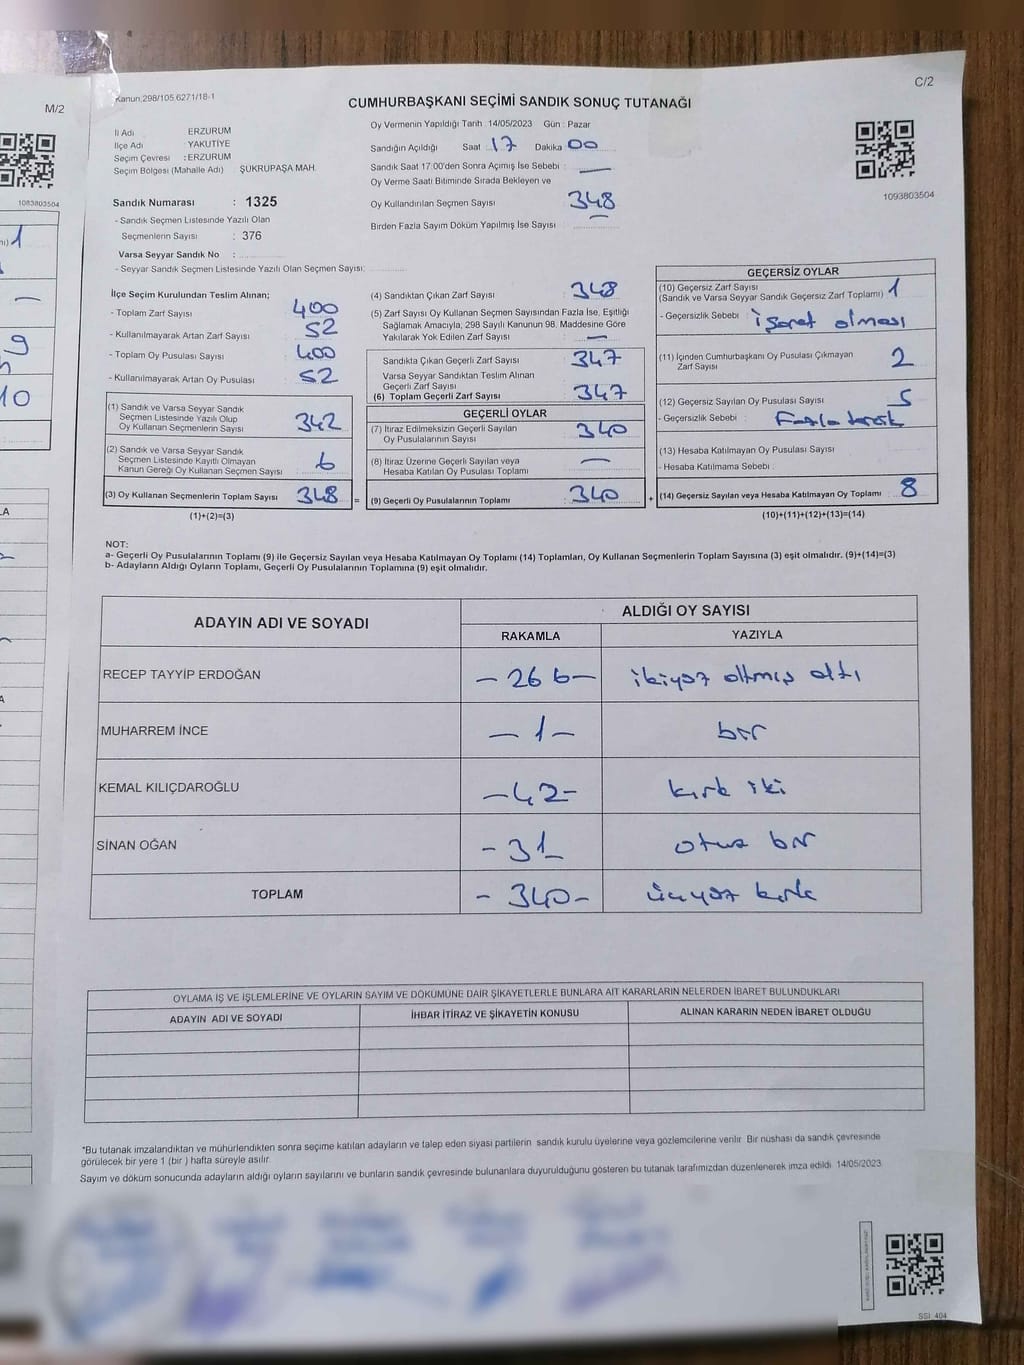 C/2
M/2
Kanun.298/105.6271/18-1
CUMHURBAŞKANI SEÇİMİ SANDIK SONUÇ TUTANAĞI
İl Adı ERZURUM
İlçe Adı : YAKUTİYE
Seçim Çevresi : ERZURUM
Seçim Bölgesi (Mahalle Adı) ŞÜKRÜPAŞA MAH.
Sandık Numarası : 1325
- Sandık Seçmen Listesinde Yazılı Olan
Seçmenlerin Sayısı : 376
Varsa Seyyar Sandık No :
- Seyyar Sandık Seçmen Listesinde Yazılı Olan Seçmen Sayısı:
Oy Vermenin Yapıldığı Tarih :14/05/2023 Gün : Pazar
Sandığın Açıldığı Saat 17 Dakika 00
Sandık Saat 17:00'den Sonra Açımış İse Sebebi : —
Oy Verme Saati Bitiminde Sırada Bekleyen ve
Oy Kullandırılan Seçmen Sayısı 348
Birden Fazla Sayım Döküm Yapılmış İse Sayısı : —
1093803504
1083803504
İlçe Seçim Kurulundan Teslim Alınan;
- Toplam Zarf Sayısı : 400
- Kullanılmayarak Artan Zarf Sayısı : 52
- Toplam Oy Pusulası Sayısı : 400
- Kullanılmayarak Artan Oy Pusulası : 52
(1) Sandık ve Varsa Seyyar Sandık
Seçmen Listesinde Yazılı Olup
Oy Kullanan Seçmenlerin Sayısı : 342
(2) Sandık ve Varsa Seyyar Sandık
Seçmen Listesinde Kayıtlı Olmayan
Kanun Gereği Oy Kullanan Seçmen Sayısı : 6
(3) Oy Kullanan Seçmenlerin Toplam Sayısı : 348
(1)+(2)=(3)
(4) Sandıktan Çıkan Zarf Sayısı : 348
(5) Zarf Sayısı Oy Kullanan Seçmen Sayısından Fazla İse, Eşitliği
Sağlamak Amacıyla, 298 Sayılı Kanunun 98. Maddesine Göre
Yakılarak Yok Edilen Zarf Sayısı : —
Sandıkta Çıkan Geçerli Zarf Sayısı : 347
Varsa Seyyar Sandıktan Teslim Alınan
Geçerli Zarf Sayısı :
(6) Toplam Geçerli Zarf Sayısı : 347
GEÇERLİ OYLAR
(7) İtiraz Edilmeksizin Geçerli Sayılan
Oy Pusulalarının Sayısı : 340
(8) İtiraz Üzerine Geçerli Sayılan veya
Hesaba Katılan Oy Pusulası Toplamı : —
= (9) Geçerli Oy Pusulalarının Toplamı : 340
GEÇERSİZ OYLAR
(10) Geçersiz Zarf Sayısı
(Sandık ve Varsa Seyyar Sandık Geçersiz Zarf Toplamı) 1
- Geçersizlik Sebebi : işaret olması
(11) İçinden Cumhurbaşkanı Oy Pusulası Çıkmayan
Zarf Sayısı 2
(12) Geçersiz Sayılan Oy Pusulası Sayısı 5
- Geçersizlik Sebebi : Fazla tercih
(13) Hesaba Katılmayan Oy Pusulası Sayısı :
- Hesaba Katılmama Sebebi :
+ (14) Geçersiz Sayılan veya Hesaba Katılmayan Oy Toplamı : 8
(10)+(11)+(12)+(13)=(14)
NOT:
a- Geçerli Oy Pusulalarının Toplamı (9) ile Geçersiz Sayılan veya Hesaba Katılmayan Oy Toplamı (14) Toplamları, Oy Kullanan Seçmenlerin Toplam Sayısına (3) eşit olmalıdır. (9)+(14)=(3)
b- Adayların Aldığı Oyların Toplamı, Geçerli Oy Pusulalarının Toplamına (9) eşit olmalıdır.
ADAYIN ADI VE SOYADI
ALDIĞI OY SAYISI
RAKAMLA YAZIYLA
RECEP TAYYİP ERDOĞAN — 266 — ikiyüz altmış altı
MUHARREM İNCE — 1 — bir
KEMAL KILIÇDAROĞLU — 42 - kırk iki
SİNAN OĞAN - 31 - otuz bir
TOPLAM - 340 - üçyüz kırk
OYLAMA İŞ VE İŞLEMLERİNE VE OYLARIN SAYIM VE DÖKÜMÜNE DAİR ŞİKAYETLERLE BUNLARA AİT KARARLARIN NELERDEN İBARET BULUNDUKLARI
ADAYIN ADI VE SOYADI İHBAR İTİRAZ VE ŞİKAYETİN KONUSU ALINAN KARARIN NEDEN İBARET OLDUĞU
*Bu tutanak imzalandıktan ve mühürlendikten sonra seçime katılan adayların ve talep eden siyasi partilerin sandık kurulu üyelerine veya gözlemcilerine verilir. Bir nüshası da sandık çevresinde
görülecek bir yere 1 (bir ) hafta süreyle asılır.
Sayım ve döküm sonucunda adayların aldığı oyların sayılarını ve bunların sandık çevresinde bulunanlara duyurulduğunu gösteren bu tutanak tarafımızdan düzenlenerek imza edildi. 14/05/2023
SSI: 404